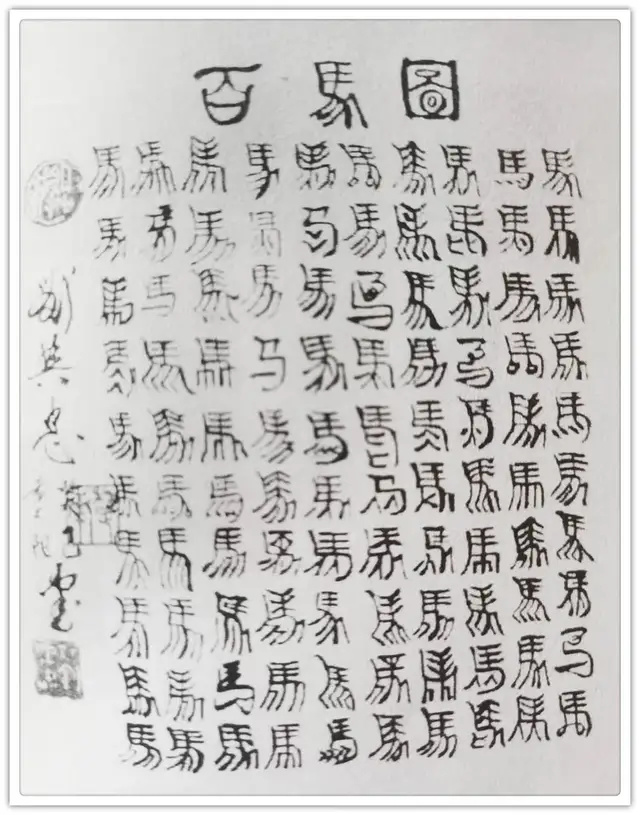 百馬圖
馬馬馬馬馬馬馬馬馬馬
馬馬馬馬馬馬馬馬馬馬
馬馬馬馬馬馬馬馬馬馬
馬馬馬马馬馬馬馬馬馬
馬馬馬馬馬馬馬馬馬馬
馬馬馬馬馬馬馬馬馬馬
馬馬馬馬馬馬馬馬馬馬
馬馬馬馬馬馬馬馬馬馬
馬馬馬馬馬馬馬馬馬马
馬馬馬馬馬馬馬馬馬馬